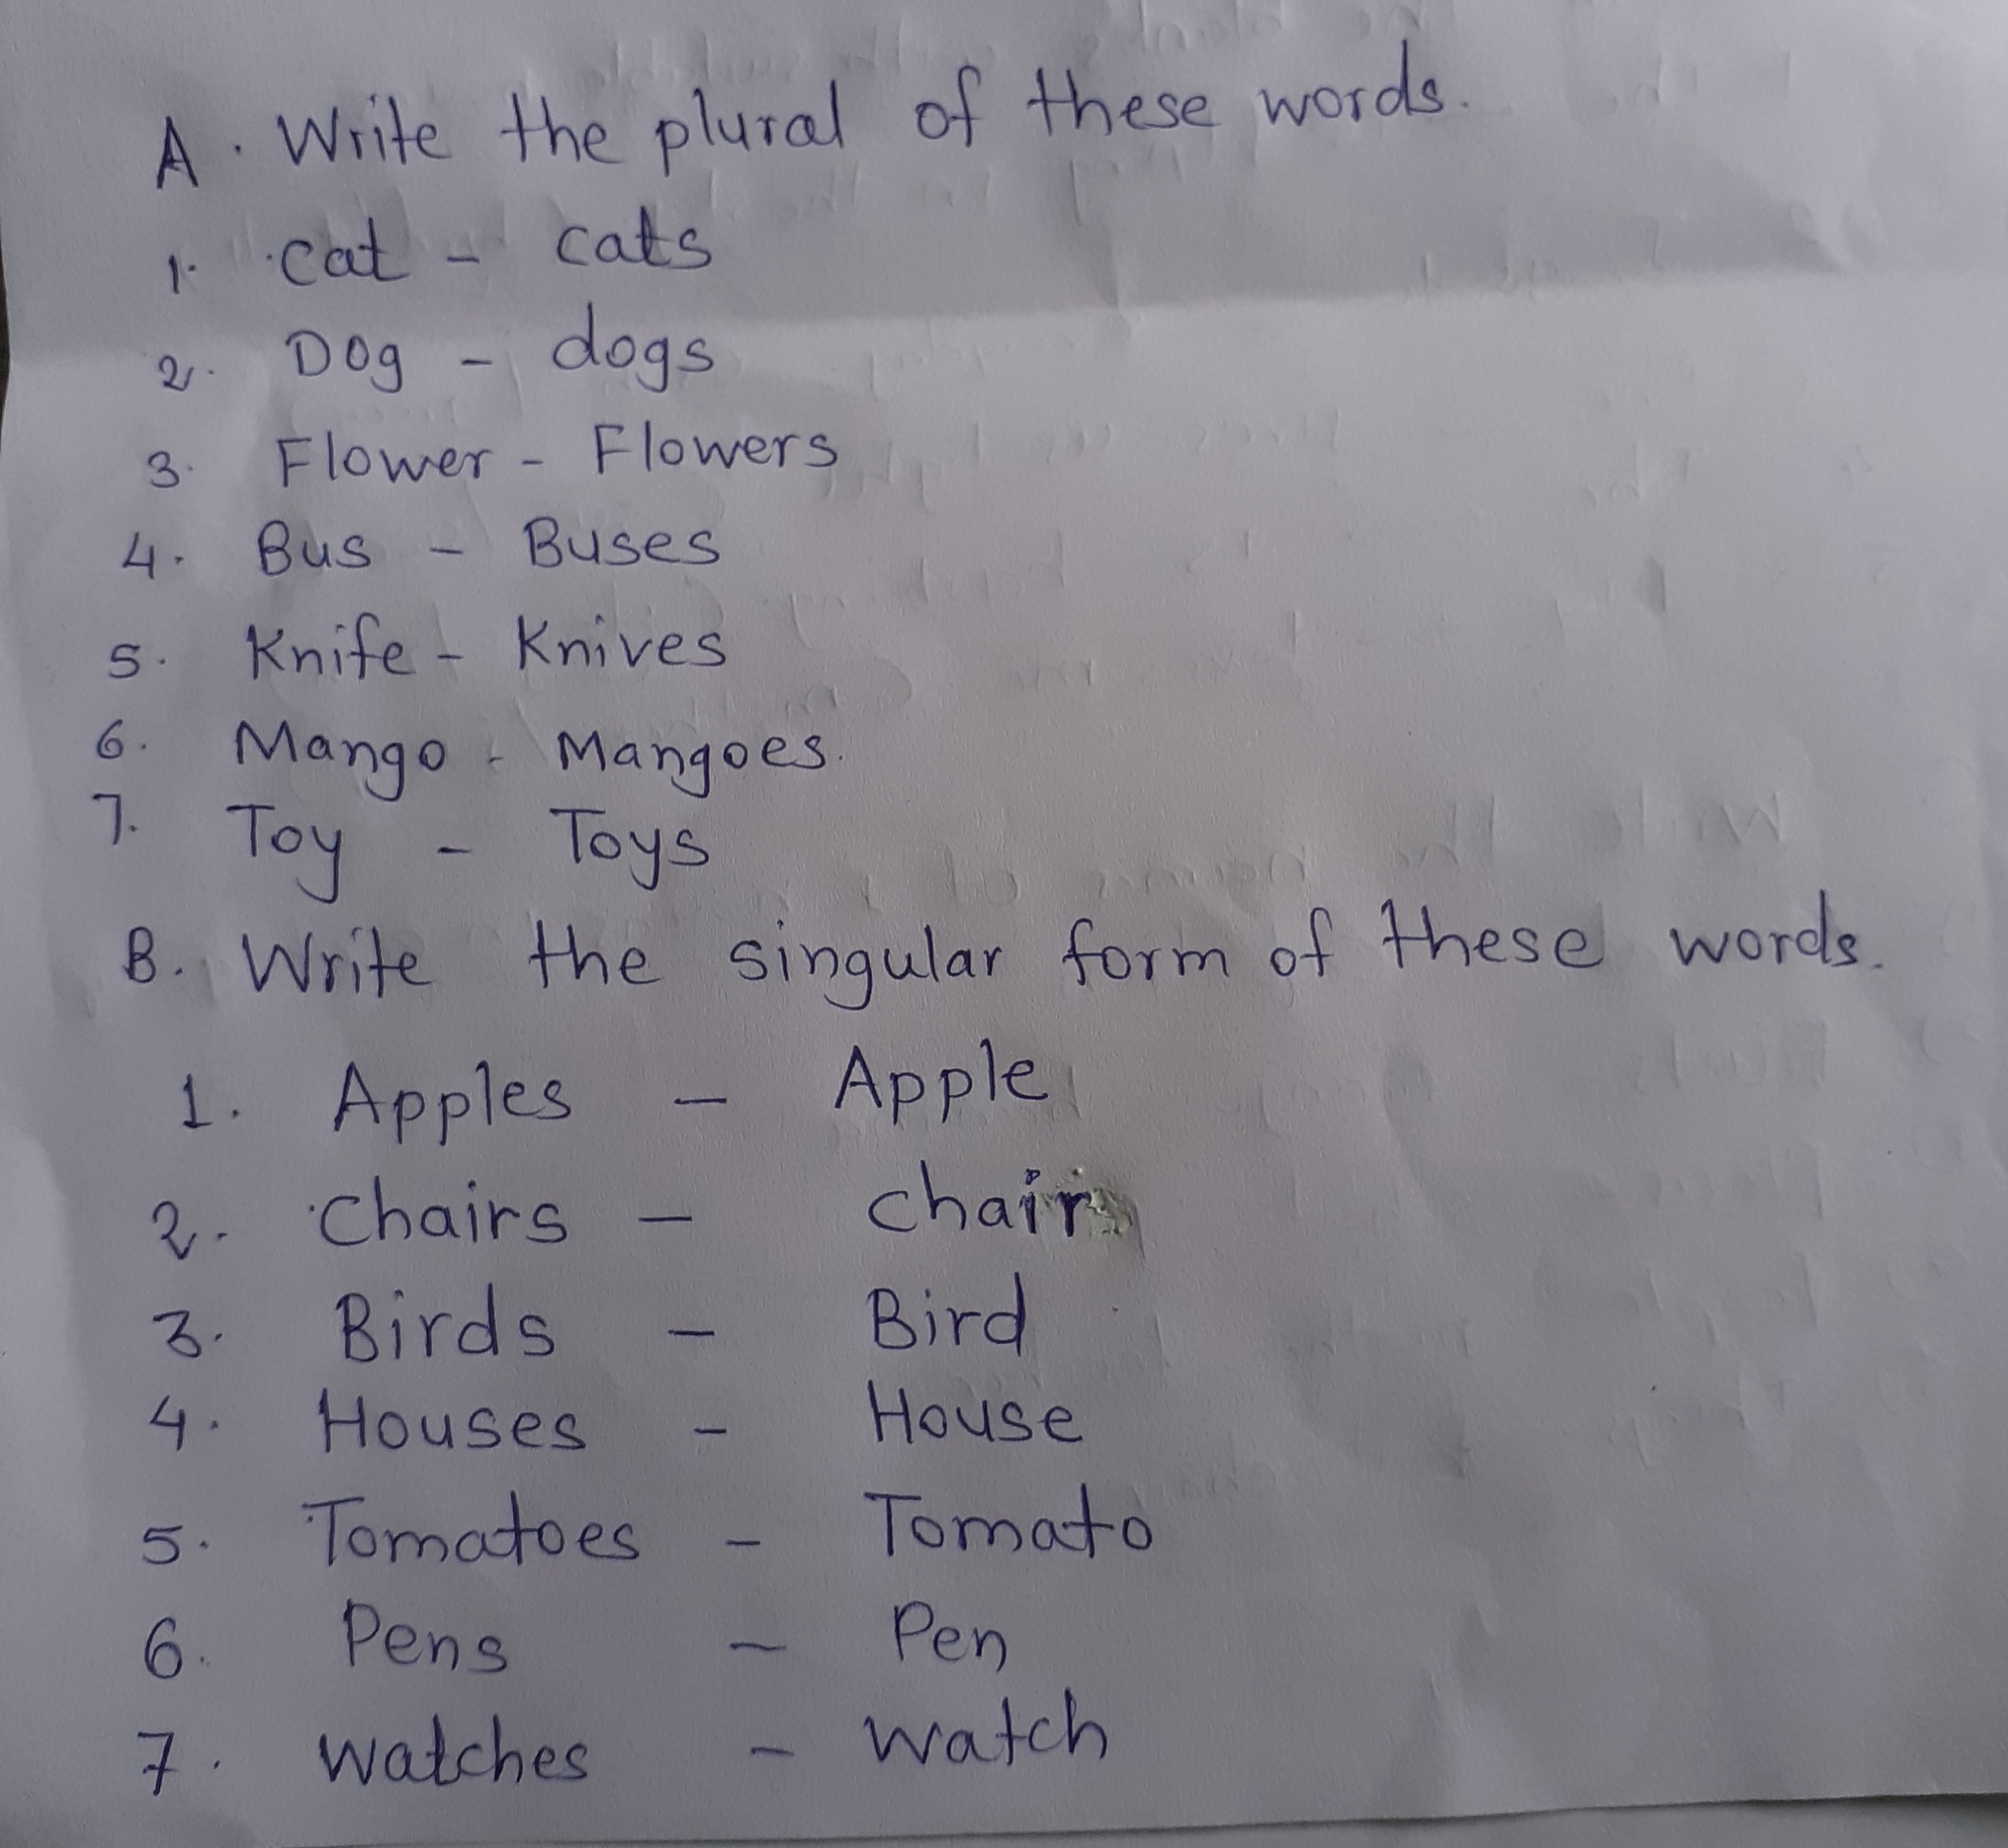 A. Write the plural of these words.
1. Cat - cats
2. Dog - dogs
3. Flower - Flowers
4. Bus - Buses
5. Knife - Knives
6. Mango - Mangoes.
7. Toy - Toys
B. Write the singular form of these words.
1. Apples - Apple
2. Chairs - chair
3. Birds - Bird
4. Houses - House
5. Tomatoes - Tomato
6. Pens - Pen
7. Watches - Watch